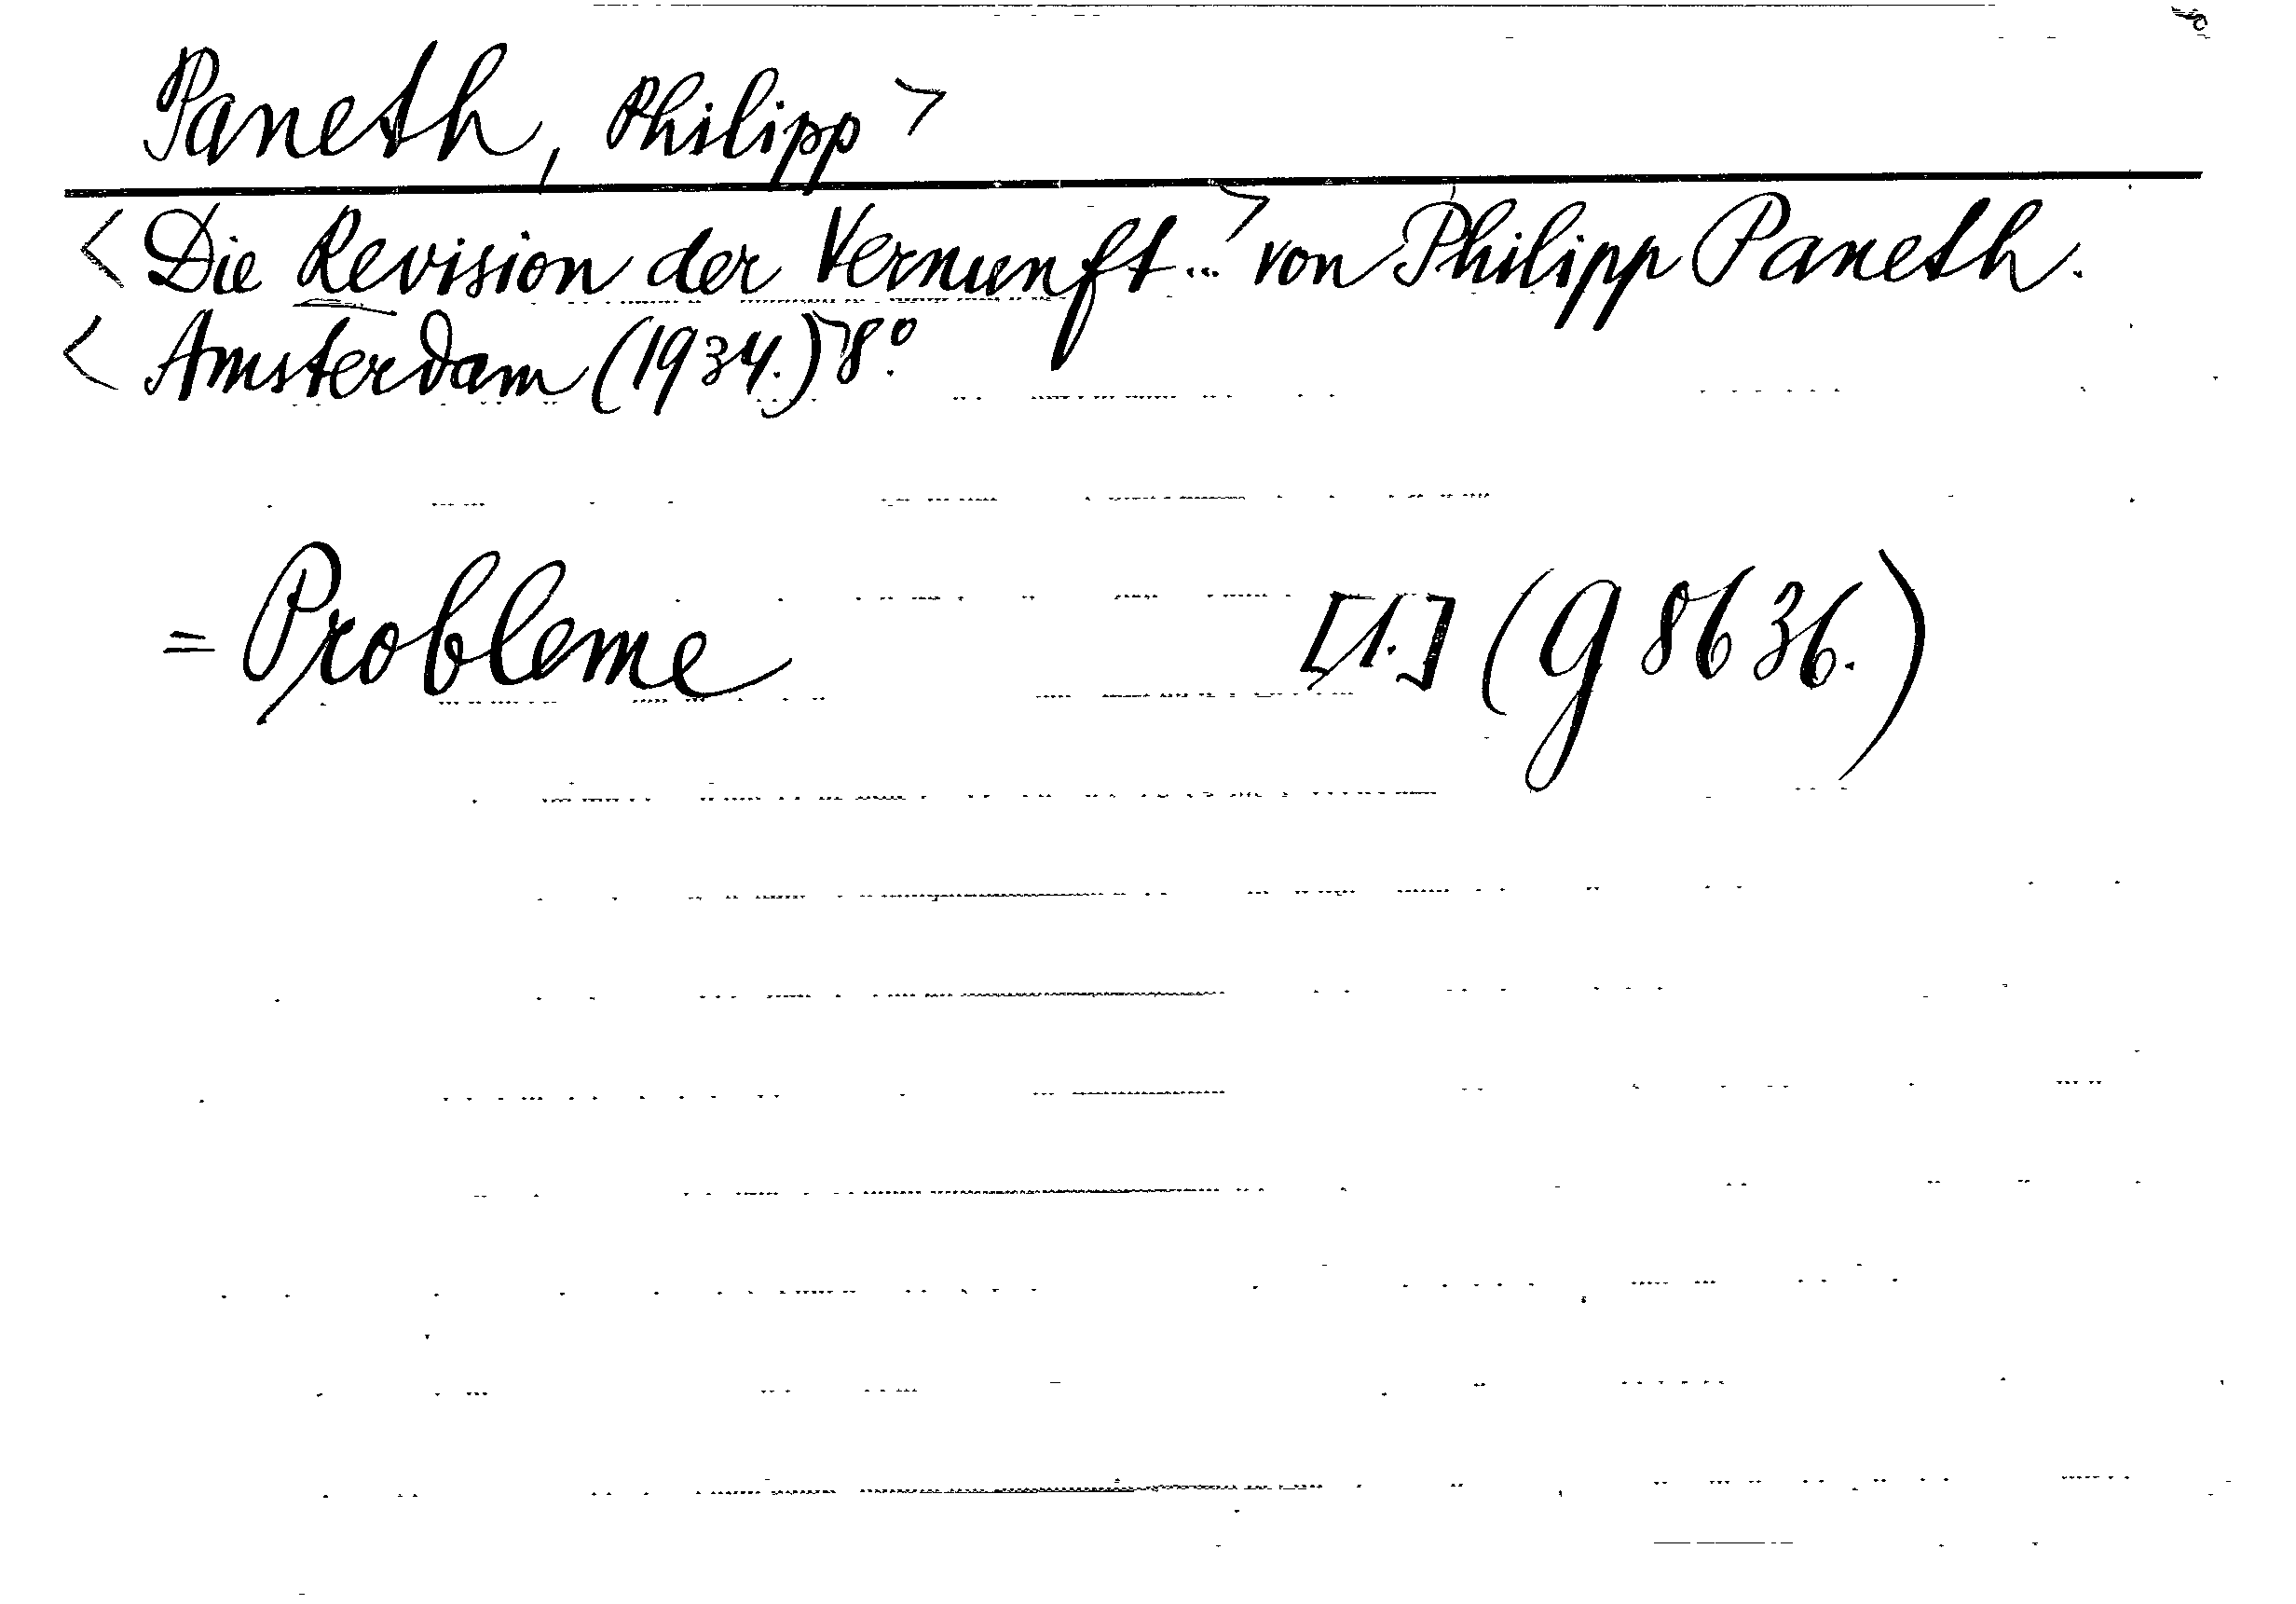 Paneth, Philipp>
<Die Revision der Vernunft...> von Philipp Paneth.
<Amsterdam (1934.)> 8°.
= Probleme [1.] (G 8636.)